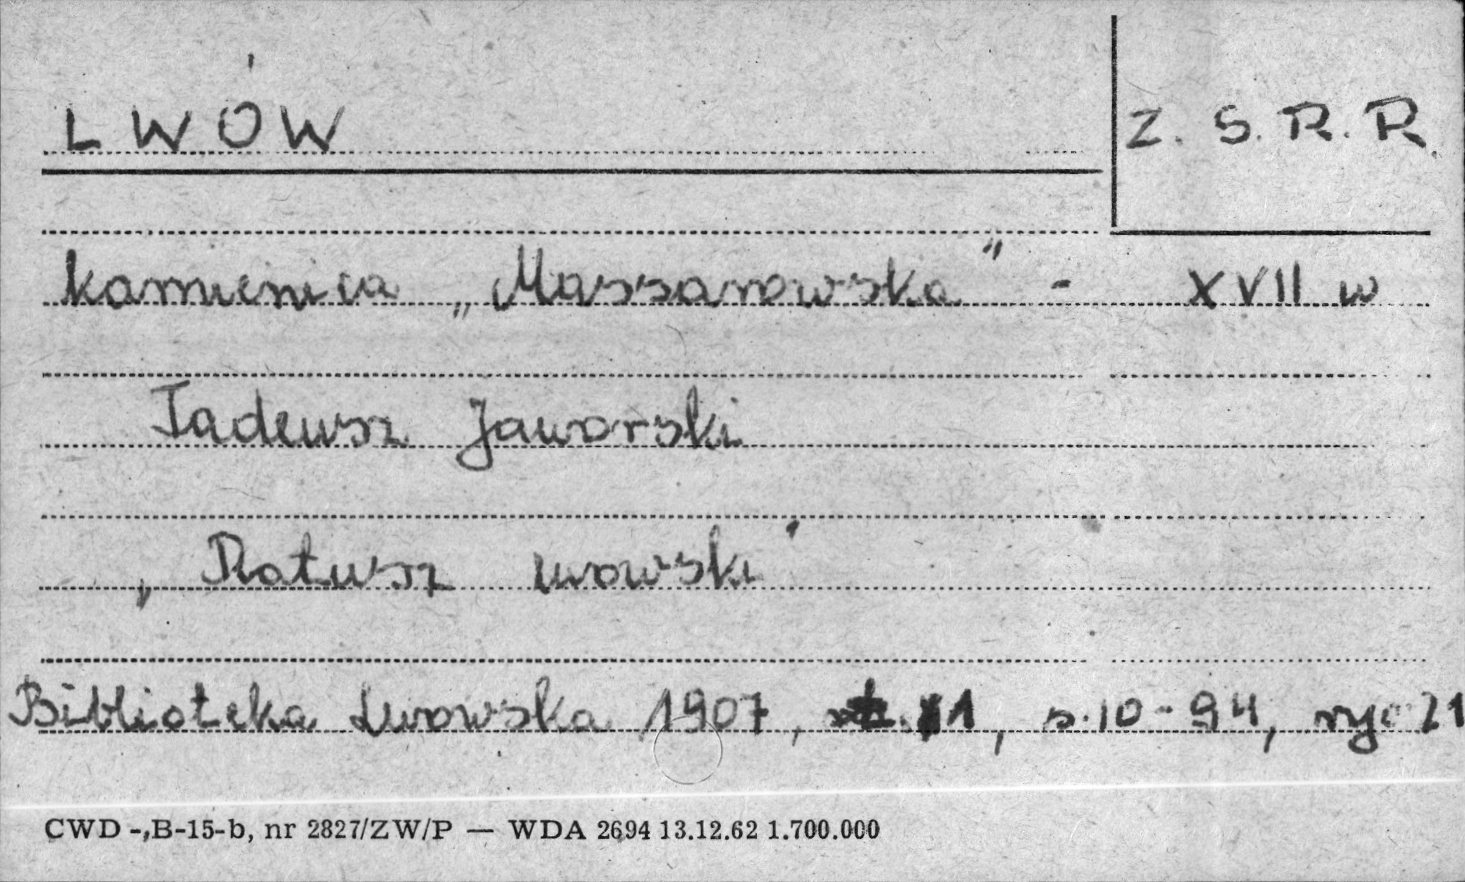 LWÓW
Z. S. R. R.
kamienica „Massarowska" - XVII w
Tadeusz Jaworski
„Ratusz lwowski"
Biblioteka Lwowska 1907, 1, s. 10-94, ryc 21
CWD -,B-15-b, nr 2827/ZW/P — WDA 2694 13.12.62 1.700.000